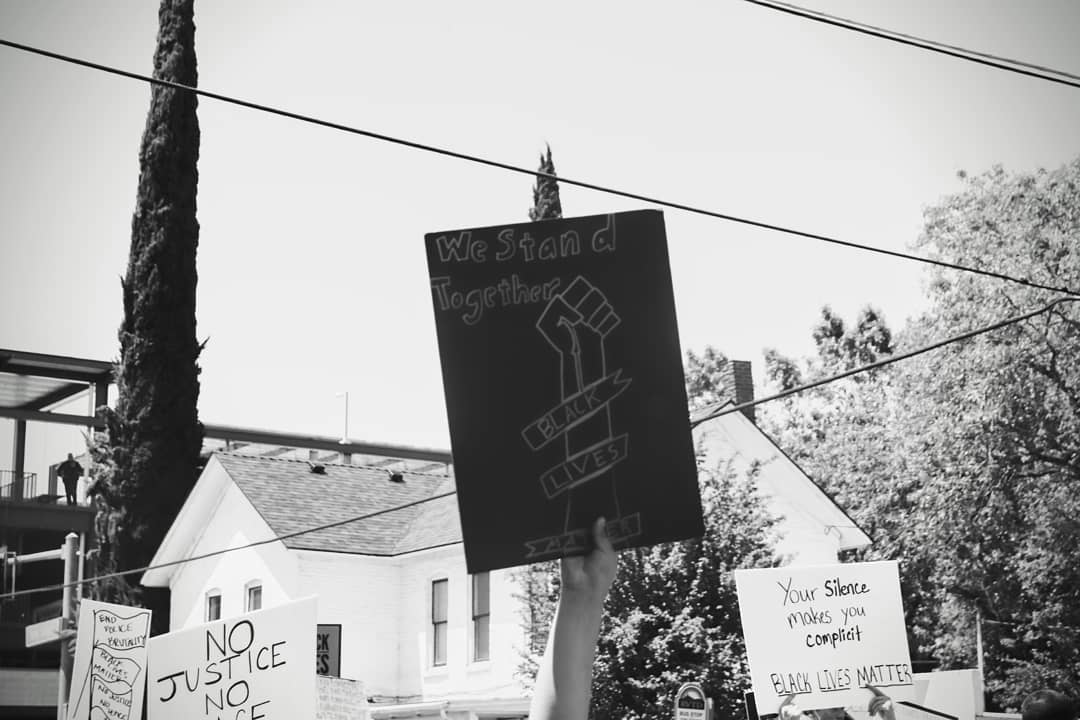 We Stand
Together
BLACK
LIVES
END
POLICE
BRUTALITY
BLACK LIVES
MATTER
NO JUSTICE
NO PEACE
NO
JUSTICE
NO
Your Silence
makes you
complicit
BLACK LIVES MATTER
BUS STOP